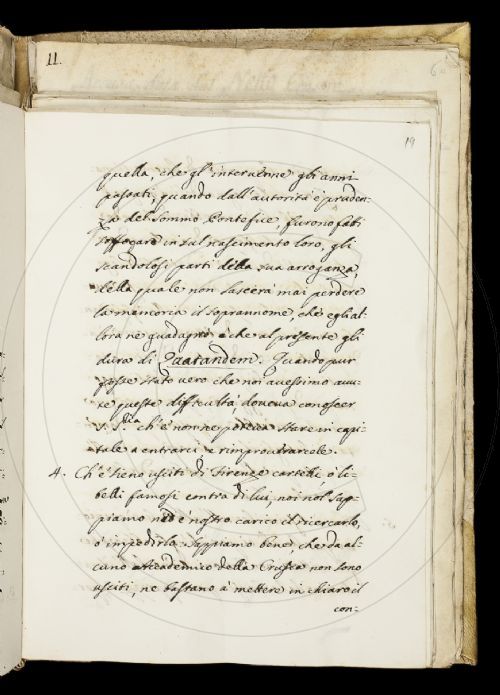 11.
19
quella, che gl'interuenne gli anni
passati, quando dall'autorità e pruden-
za del Sommo Pontefice, furono fatti
soffogare in sul nascimento loro, gli
scandolosi parti della sua arroganza,
della quale non lascerà mai perdere
la memoria il soprannome, che egli al-
lora ne guadagnò e che al presente gli
dura di Quatandem. Quando pur
fosse stato uero che noi auessimo auu-
te queste difficultà, doueua conoscer
S. S.ria ch'e' non ne poteua stare in capi-
tale a entrarci a rimprouerarcele.
4. Ch'e' sieno usciti di Firenze cartelli, o li-
belli famosi contra di lui, noi nol sap-
piamo ned è nostro carico il ricercarlo,
o impedirlo. Sappiamo bene, che da al-
cuno Accademico della Crusca non sono
usciti, ne bastano à mettere in chiaro il
con-